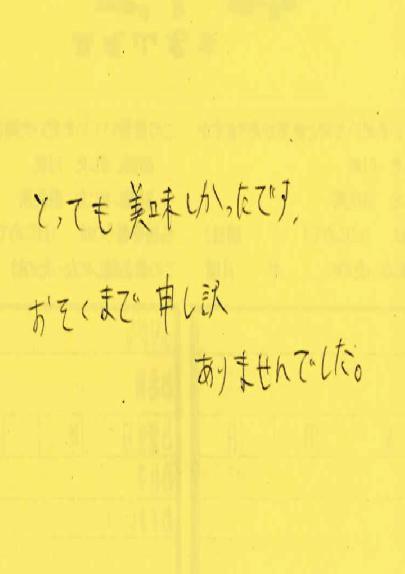 とっても美味しかったです。
おそくまで申し訳
ありませんでした。